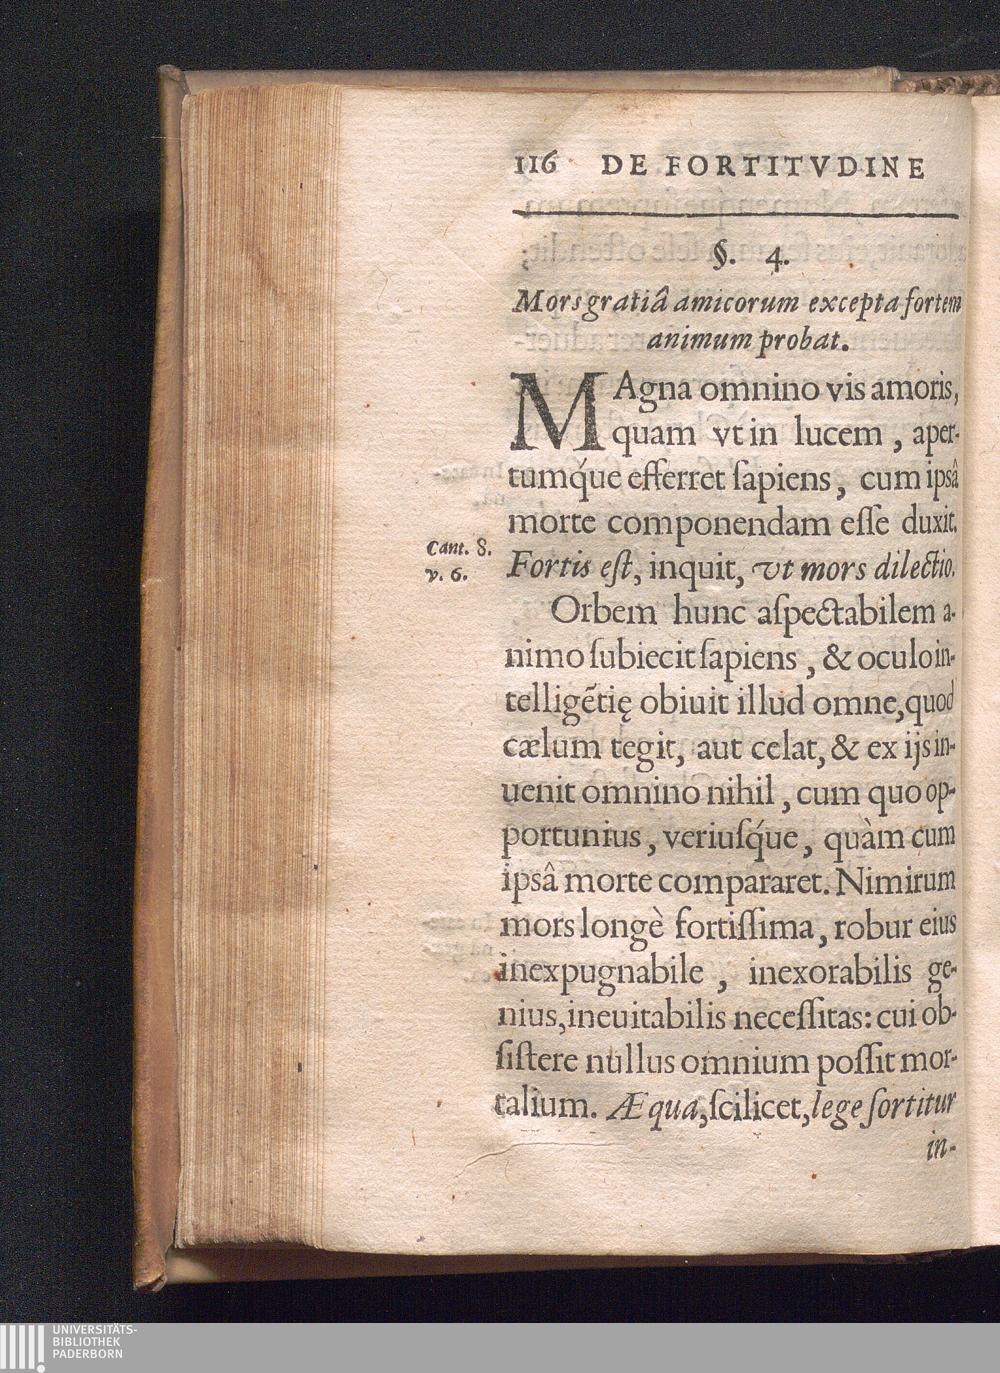 116 DE FORTITVDINE
§. 4.
Mors gratiâ amicorum excepta fortem
animum probat.
MAgna omnino vis amoris,
quam vt in lucem, aper-
tumq́ue efferret ſapiens, cum ipsâ
morte componendam eſſe duxit.
Cant. 8.
v. 6.
Fortis eſt, inquit, vt mors dilectio.
Orbem hunc aſpectabilem a-
nimo ſubiecit ſapiens, & oculo in-
telligẽtię obiuit illud omne, quod
cælum tegit, aut celat, & ex ijs in-
uenit omnino nihil, cum quo op-
portunius, veriuſq́ue, quàm cum
ipsâ morte compararet. Nimirum
mors longè fortiſſima, robur eius
inexpugnabile, inexorabilis ge-
nius, ineuitabilis neceſſitas: cui ob-
ſiſtere nullus omnium poſſit mor-
talium. Æqua, ſcilicet, lege ſortitur
in-
UNIVERSITÄTS-
BIBLIOTHEK
PADERBORN